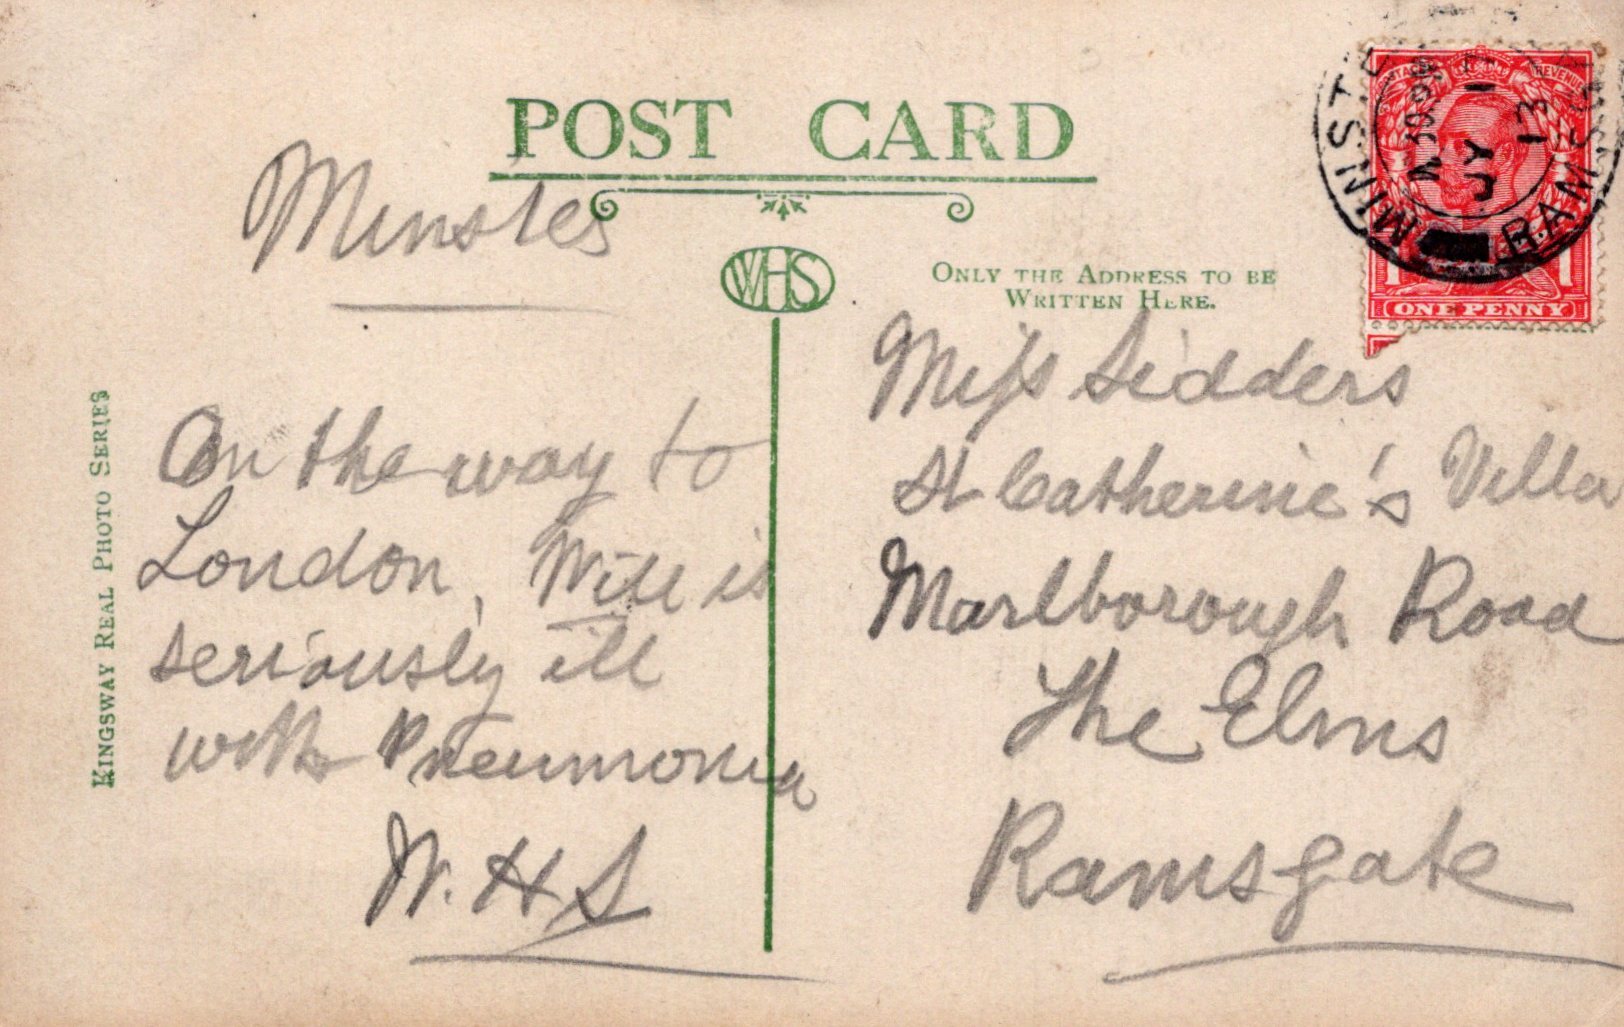 POST CARD
Minster
WHS
ONLY THE ADDRESS TO BE
WRITTEN HERE.
KINGSWAY REAL PHOTO SERIES
On the way to
London, Will is
seriously ill
with Pneumonia
W. H S
Miss Sidders
St Catherine's Villa
Marlborough Road
The Elms
Ramsgate
POSTAGE REVENUE
1 1
ONE PENNY
MINSTER RAMSGATE
JY 1
13